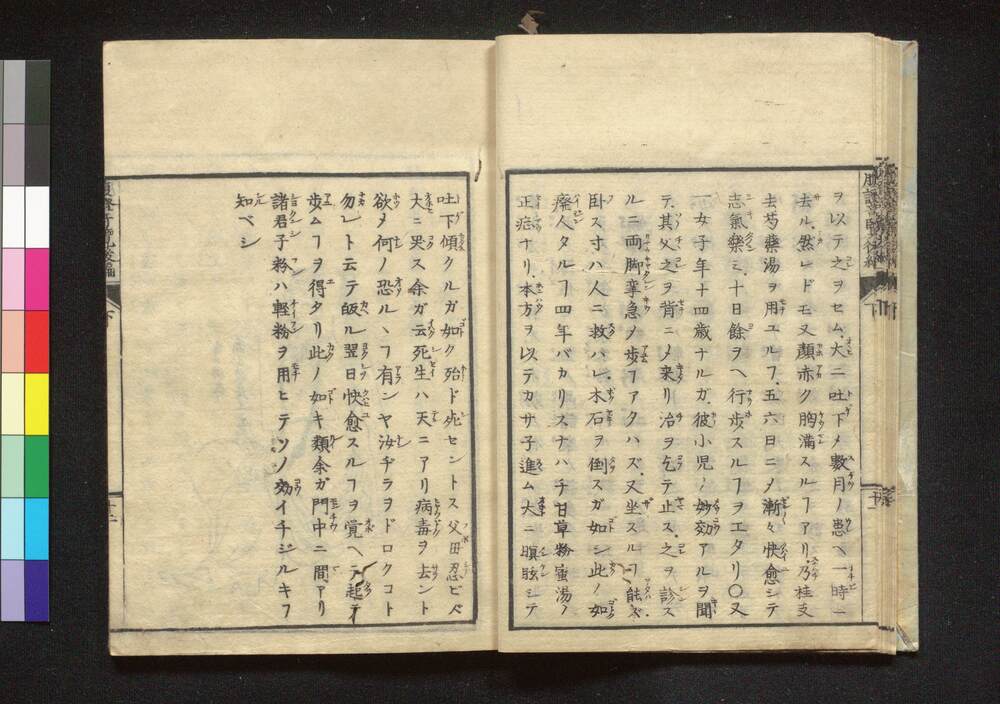 ヲ以テ之ヲセム大ニ吐下メ數月ノ患ヘ一時ニ
去ル、然レドモ又顏赤ク胸滿スルヿアリ、乃桂支
去芍藥湯ヲ用ユルヿ、五六日ニメ漸々快愈シテ
志氣樂ミ、十日餘ヲヘ行歩スルヿヲエタリ〇又
一女子年十四歳ナルガ、彼小児ノ妙効アルヲ聞
テ、其父之ヲ背ニメ来リ治ヲ乞テ止ス、之ヲ診ス
ルニ両脚攣急メ歩ヿアタハズ、又坐スルヿ能ズ、
卧ス寸ハ人ニ救ハレ、木石ヲ倒スガ如シ此ノ如
廢人タルヿ四年バカリスナハチ甘草粉蜜湯ノ
正症ナリ、本方ヲ以テカサ子進ム大ニ瞑眩シテ
吐下傾クルガ如ク殆ド死セントス父母忍ビズ
大ニ哭ス余ガ云死生ハ天ニアリ病毒ヲ去ント
欲メ何ノ恐ルヽヿ有ンヤ汝ヂラヲドロクコト
勿レト云テ皈ル翌日快愈スルヿヲ覚ヘテ起テ
歩ムヿヲ得タリ此ノ如キ類余ガ門中ニ間アリ
諸君子粉ハ軽粉ヲ用ヒテソノ効イチジルキヿ
知ベシ